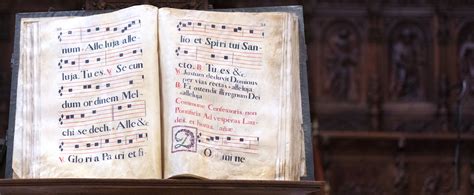 num. Alleluja alle
luja. Tu es. V Se cun
dum ordinem Mel
chi sedech. Alle &
V Gloria Patri et fi
lio et Spiri tui San
cto. R Tu es &c
V Justum deduxit Dominus
per vias rectas alleluja
R Et ostendit illi regnum Dei
alleluja
Commune Confessoris, non
Pontificis Ad vesperas
D
O mi ne